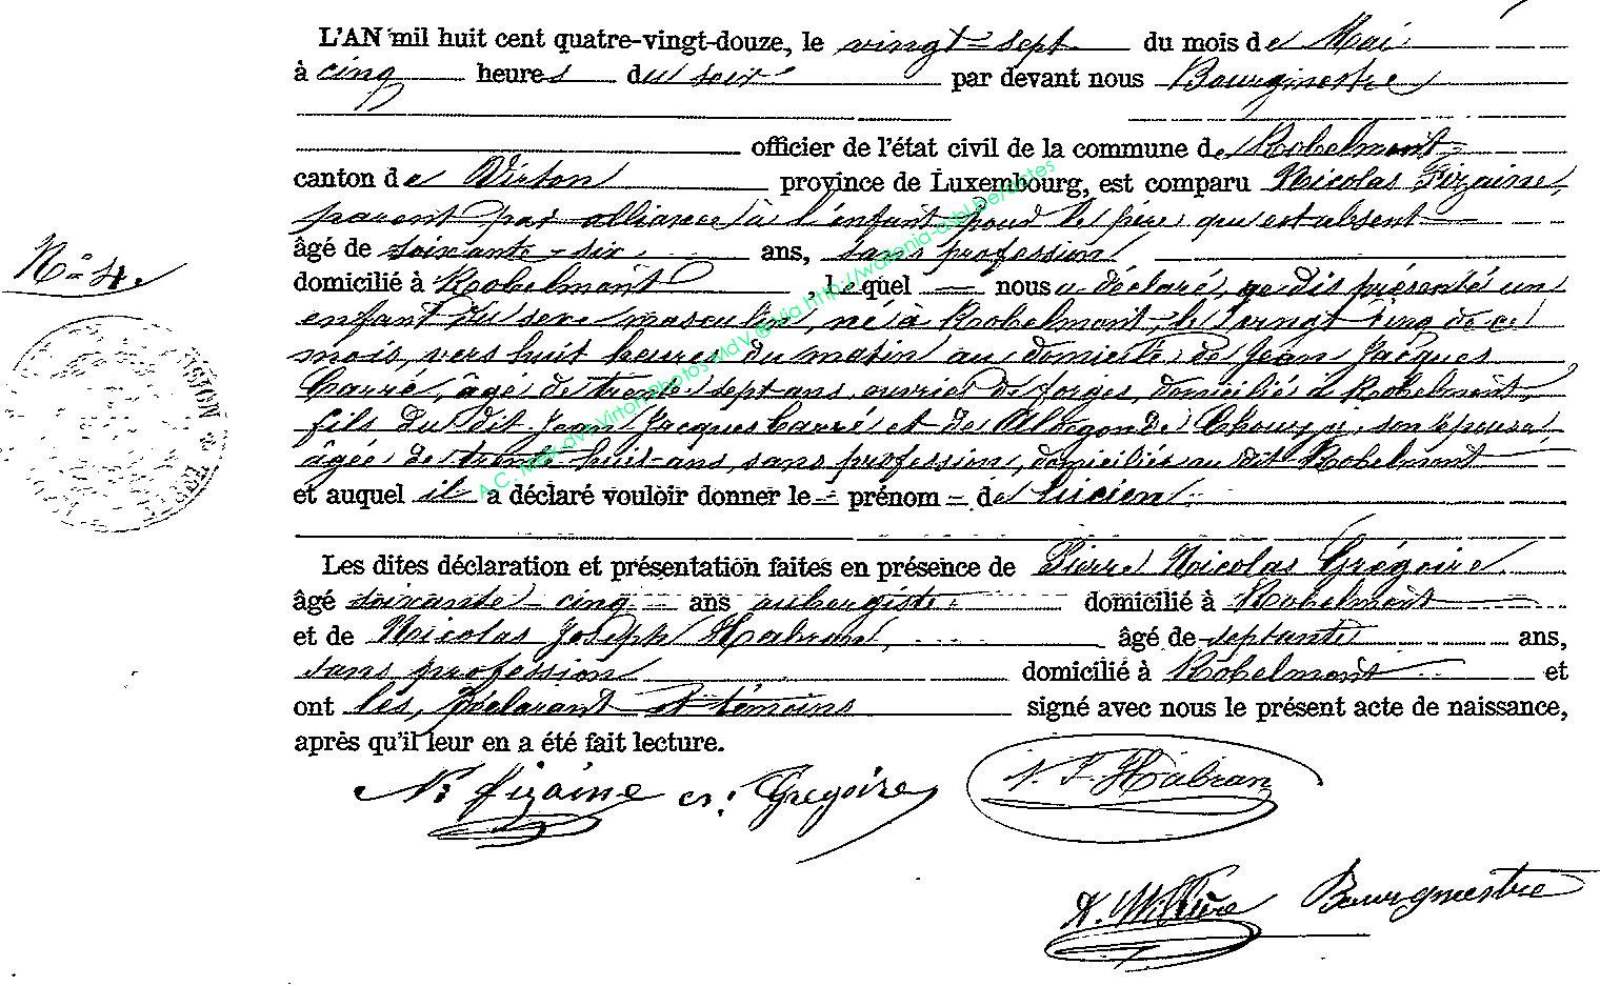 L'AN mil huit cent quatre-vingt-douze, le vingt-sept du mois de Mai
à cinq heures du soir par devant nous Bourgmestre
officier de l'état civil de la commune de Robelmont
canton de Virton province de Luxembourg, est comparu Nicolas Fizaine,
parent par alliance à l'enfant pour le père qui est absent
âgé de soixante-six ans, sans profession
N° 4.
domicilié à Robelmont, lequel nous a déclaré, présenté un
enfant du sexe masculin, né à Robelmont, le vingt cinq de ce
mois, vers huit heures du matin au domicile de Jean Jacques
Carré, âgé de trente sept ans, ouvrier de forges, domicilié à Robelmont,
fils du dit Jean Jacques Carré et de son épouse
âgée de trente-huit ans, sans profession, domiciliée au dit Robelmont
et auquel il a déclaré vouloir donner le prénom de Lucien.
Les dites déclaration et présentation faites en présence de Pierre Nicolas Grégoire
âgé soixante-cinq ans aubergiste domicilié à Robelmont
et de Nicolas Joseph Habran, âgé de septante ans,
sans profession domicilié à Robelmont et
ont les, déclarant et témoins signé avec nous le présent acte de naissance,
après qu'il leur en a été fait lecture.
N. fizaine Gregoire N. J. Habran
Bourgmestre
VIRTON
A.C. Virton photos MdV © via http://walonia-asbl.be/actes